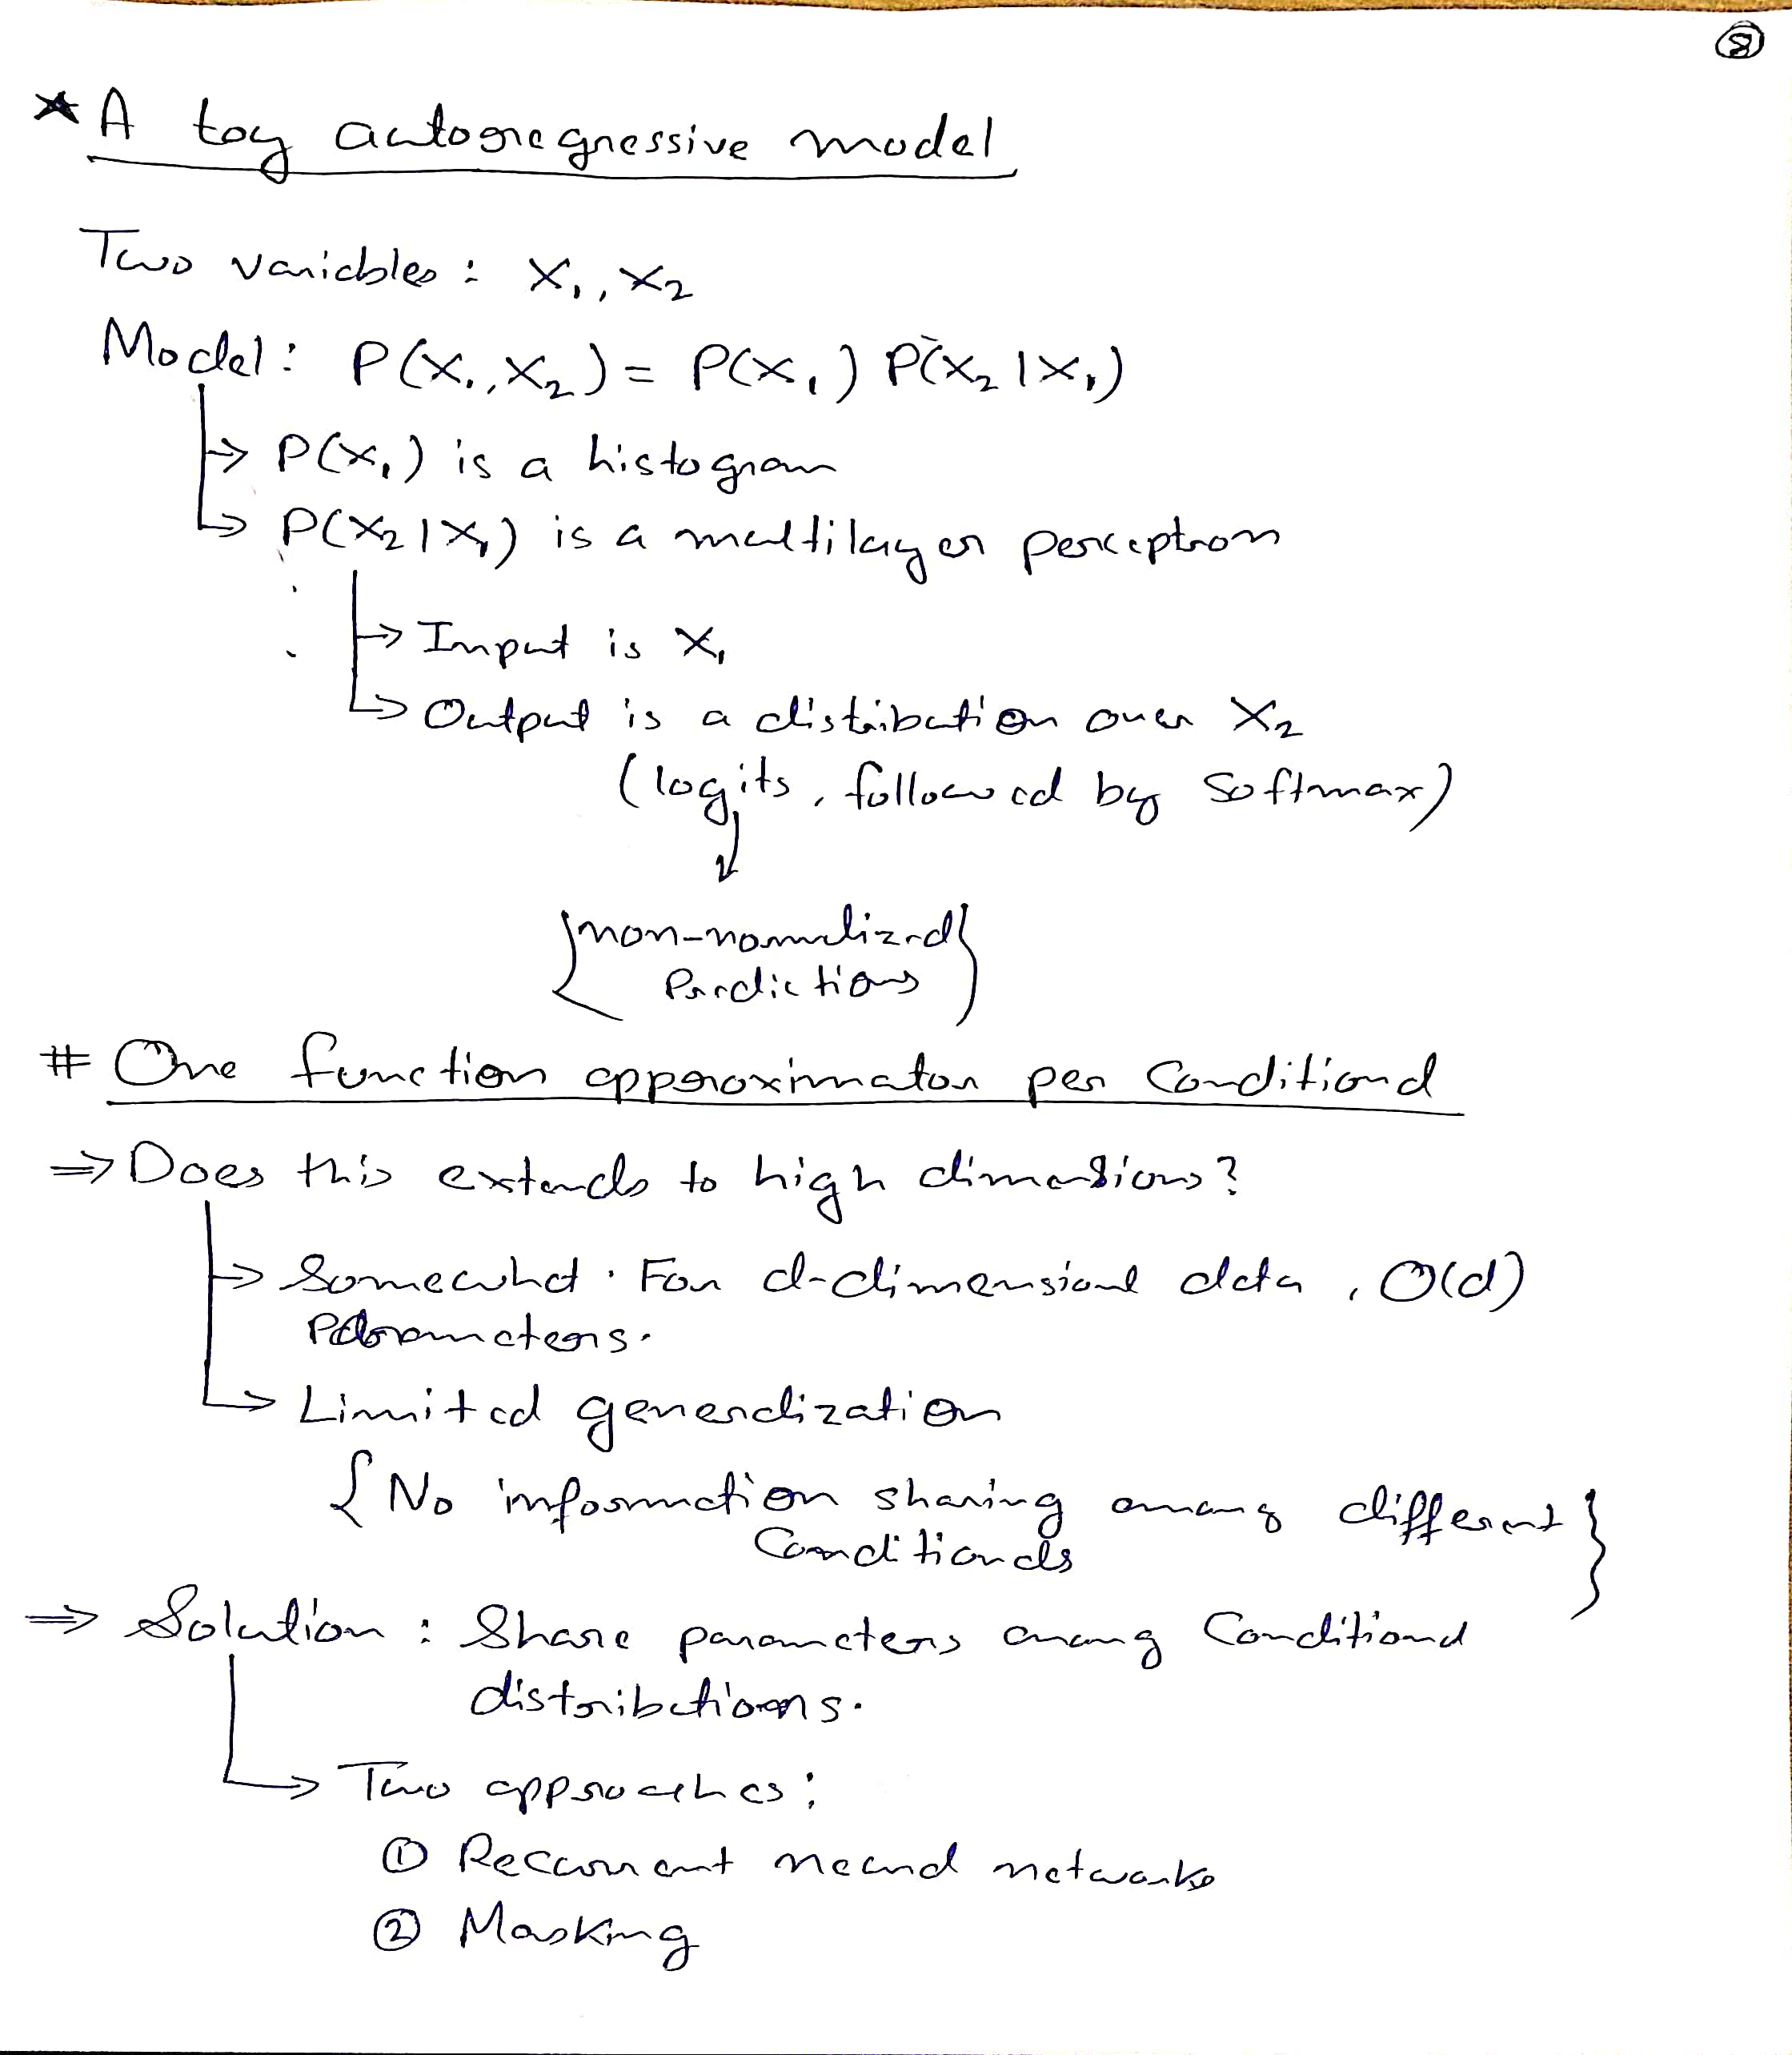 8
* A toy autoregressive model
Two variables : X₁, X₂
Model : P(X₁, X₂) = P(X₁) P(X₂ | X₁)
→ P(X₁) is a histogram
↳ P(X₂ | X₁) is a multilayer perceptron
→ Input is X₁
↳ Output is a distribution over X₂
(logits, followed by Softmax)
↓
{ non-normalized
Predictions }
# One function approximator per Conditional
⇒ Does this extends to high dimensions?
→ Somewhat. For d-dimensional data, O(d)
Parameters.
↳ Limited generalization
{ No information sharing among different }
Conditionals
⇒ Solution : Share parameters among Conditional
distributions.
↳ Two approaches :
① Recurrent neural networks
② Masking